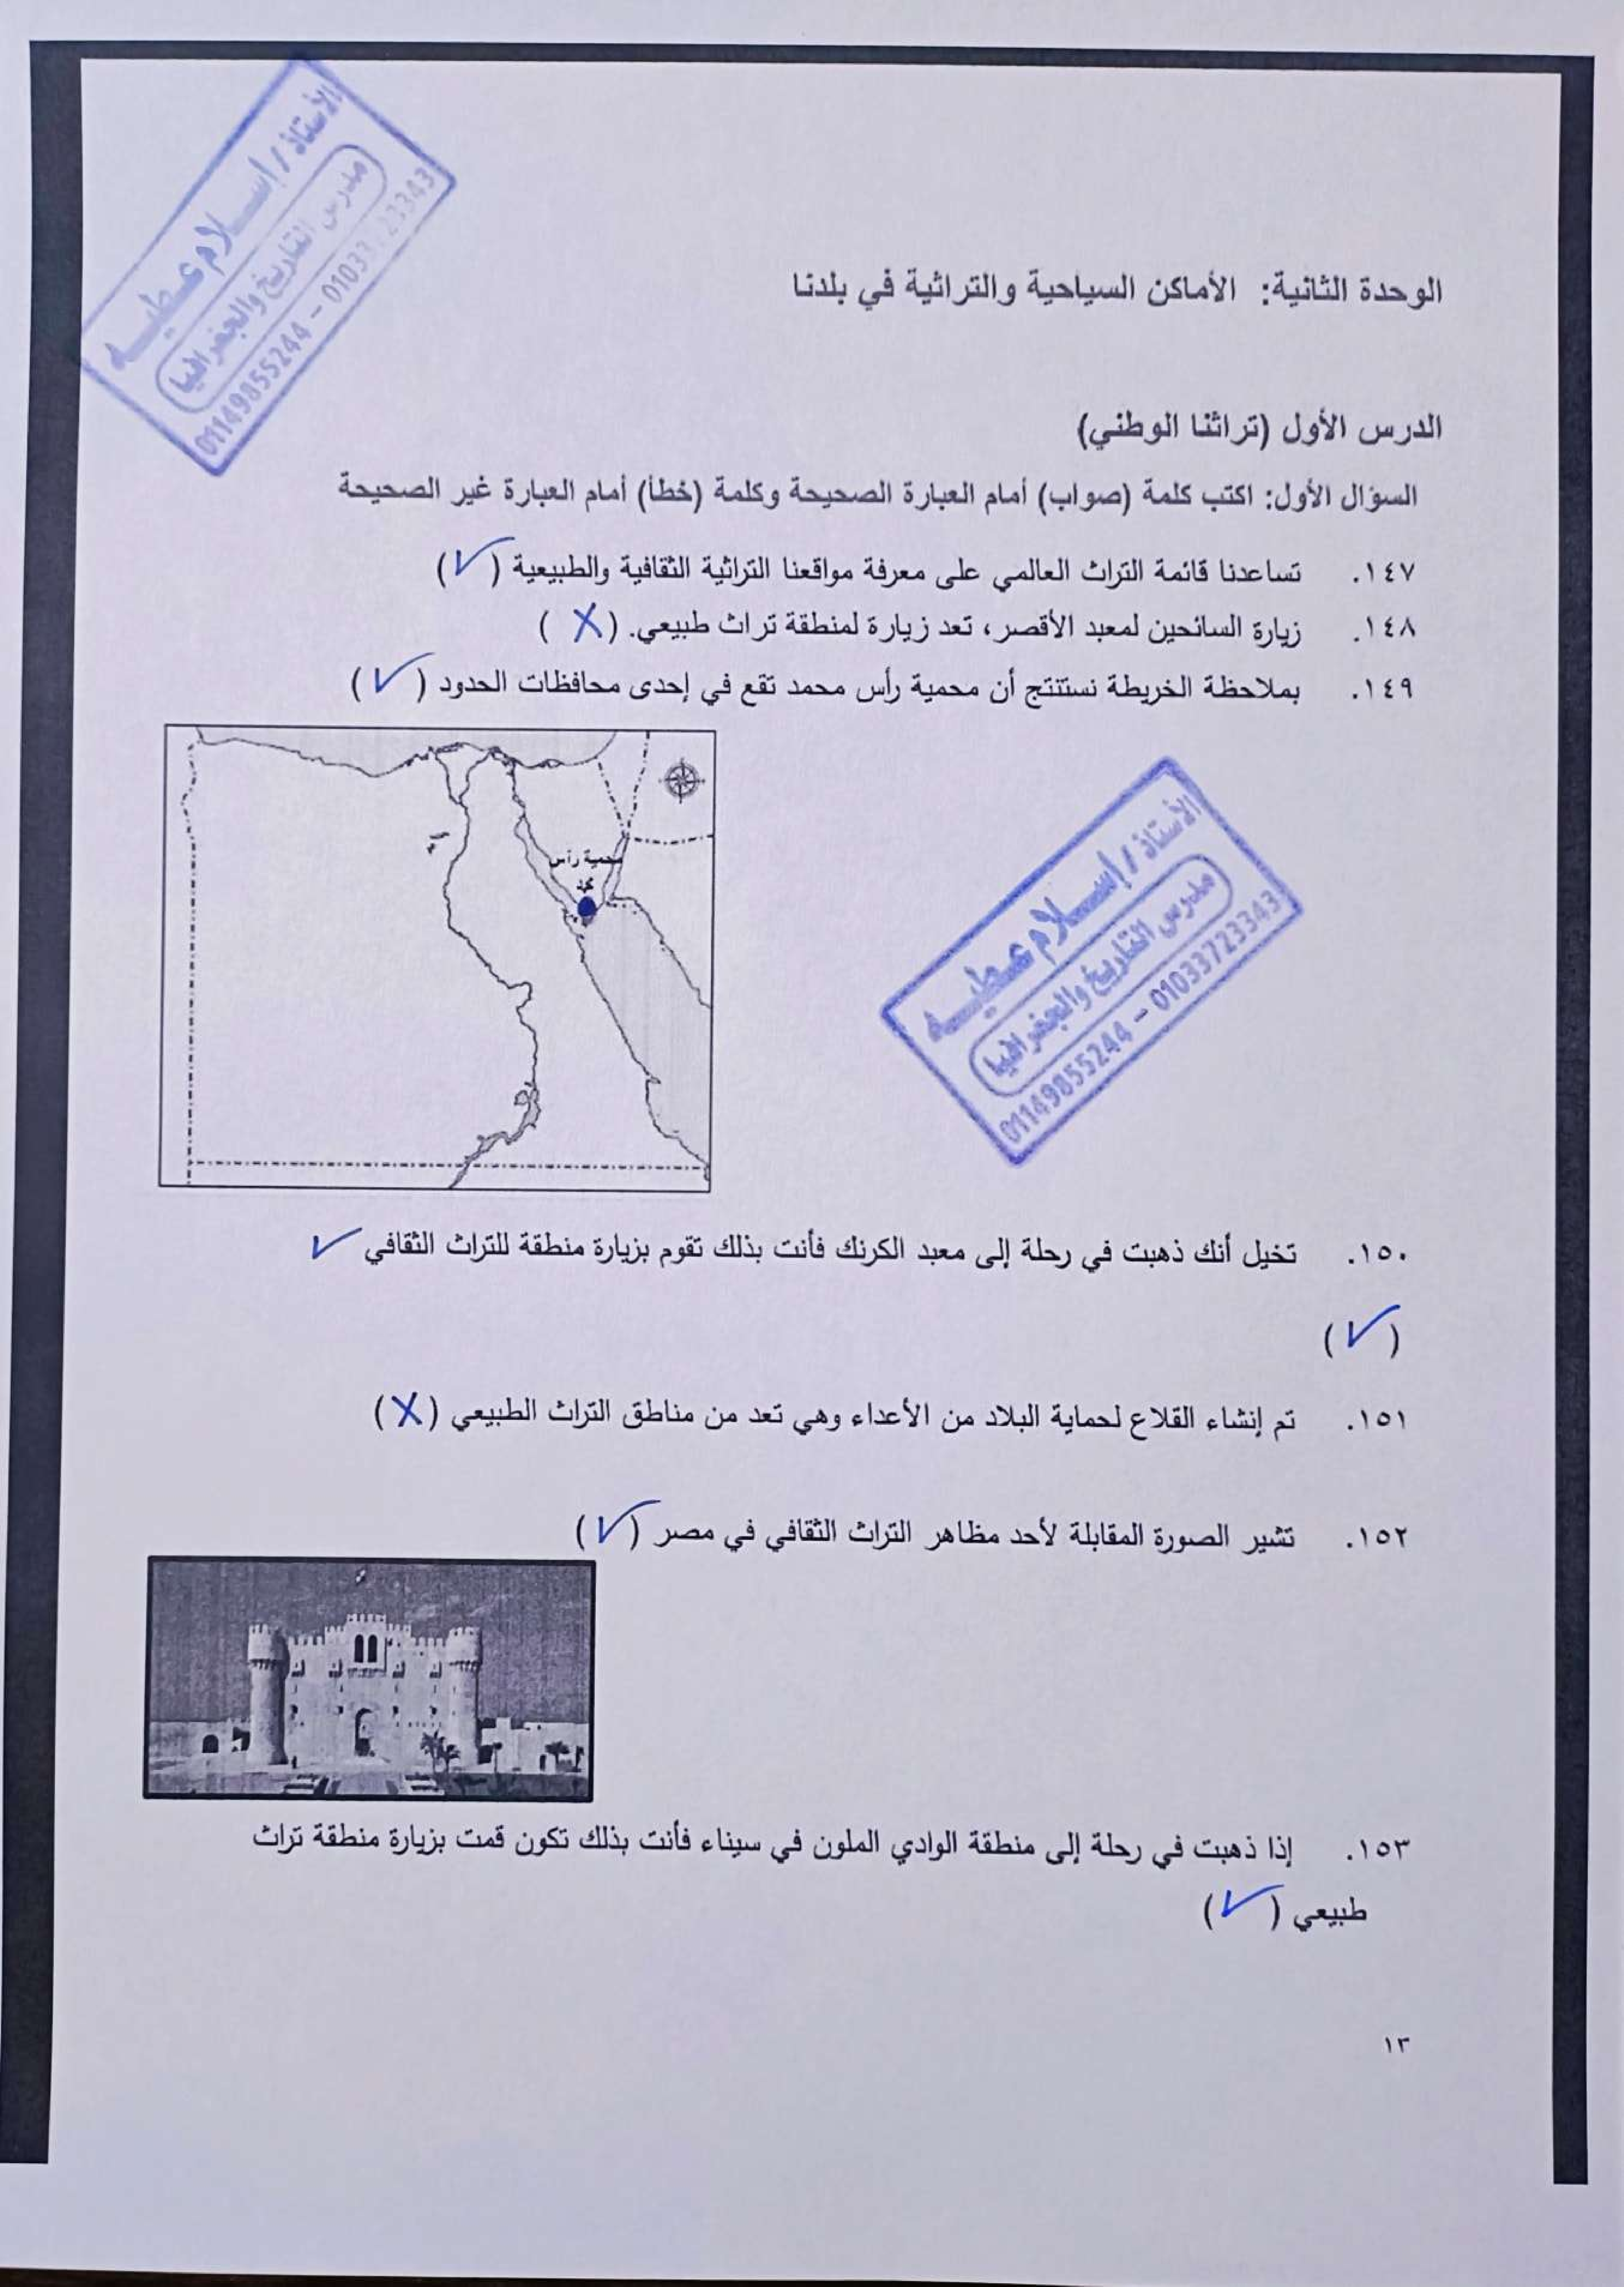 الأستاذ / إسلام عطيه
مدرس التاريخ والجغرافيا
01149855244 - 01033723343
الوحدة الثانية: الأماكن السياحية والتراثية في بلدنا
الدرس الأول (تراثنا الوطني)
السؤال الأول: اكتب كلمة (صواب) أمام العبارة الصحيحة وكلمة (خطأ) أمام العبارة غير الصحيحة
١٤٧. تساعدنا قائمة التراث العالمي على معرفة مواقعنا التراثية الثقافية والطبيعية (✓)
١٤٨. زيارة السائحين لمعبد الأقصر، تعد زيارة لمنطقة تراث طبيعي. (X)
١٤٩. بملاحظة الخريطة نستنتج أن محمية رأس محمد تقع في إحدى محافظات الحدود (✓)
محمية رأس
محمد
الأستاذ / إسلام عطيه
مدرس التاريخ والجغرافيا
01149855244 - 01033723343
١٥٠. تخيل أنك ذهبت في رحلة إلى معبد الكرنك فأنت بذلك تقوم بزيارة منطقة للتراث الثقافي ✓
(✓)
١٥١. تم إنشاء القلاع لحماية البلاد من الأعداء وهي تعد من مناطق التراث الطبيعي (X)
١٥٢. تشير الصورة المقابلة لأحد مظاهر التراث الثقافي في مصر (✓)
١٥٣. إذا ذهبت في رحلة إلى منطقة الوادي الملون في سيناء فأنت بذلك تكون قمت بزيارة منطقة تراث
طبيعي (✓)
١٣